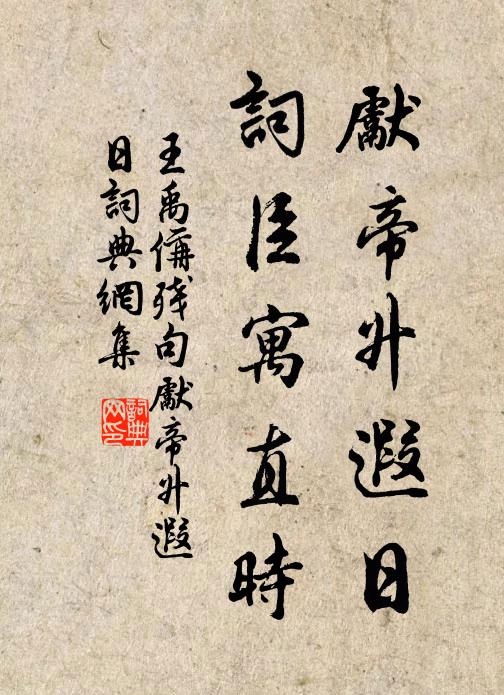 獻帝升遐日
詞臣寓直時
王禹偁殘句獻帝升遐
日詞典網集
詞典网印